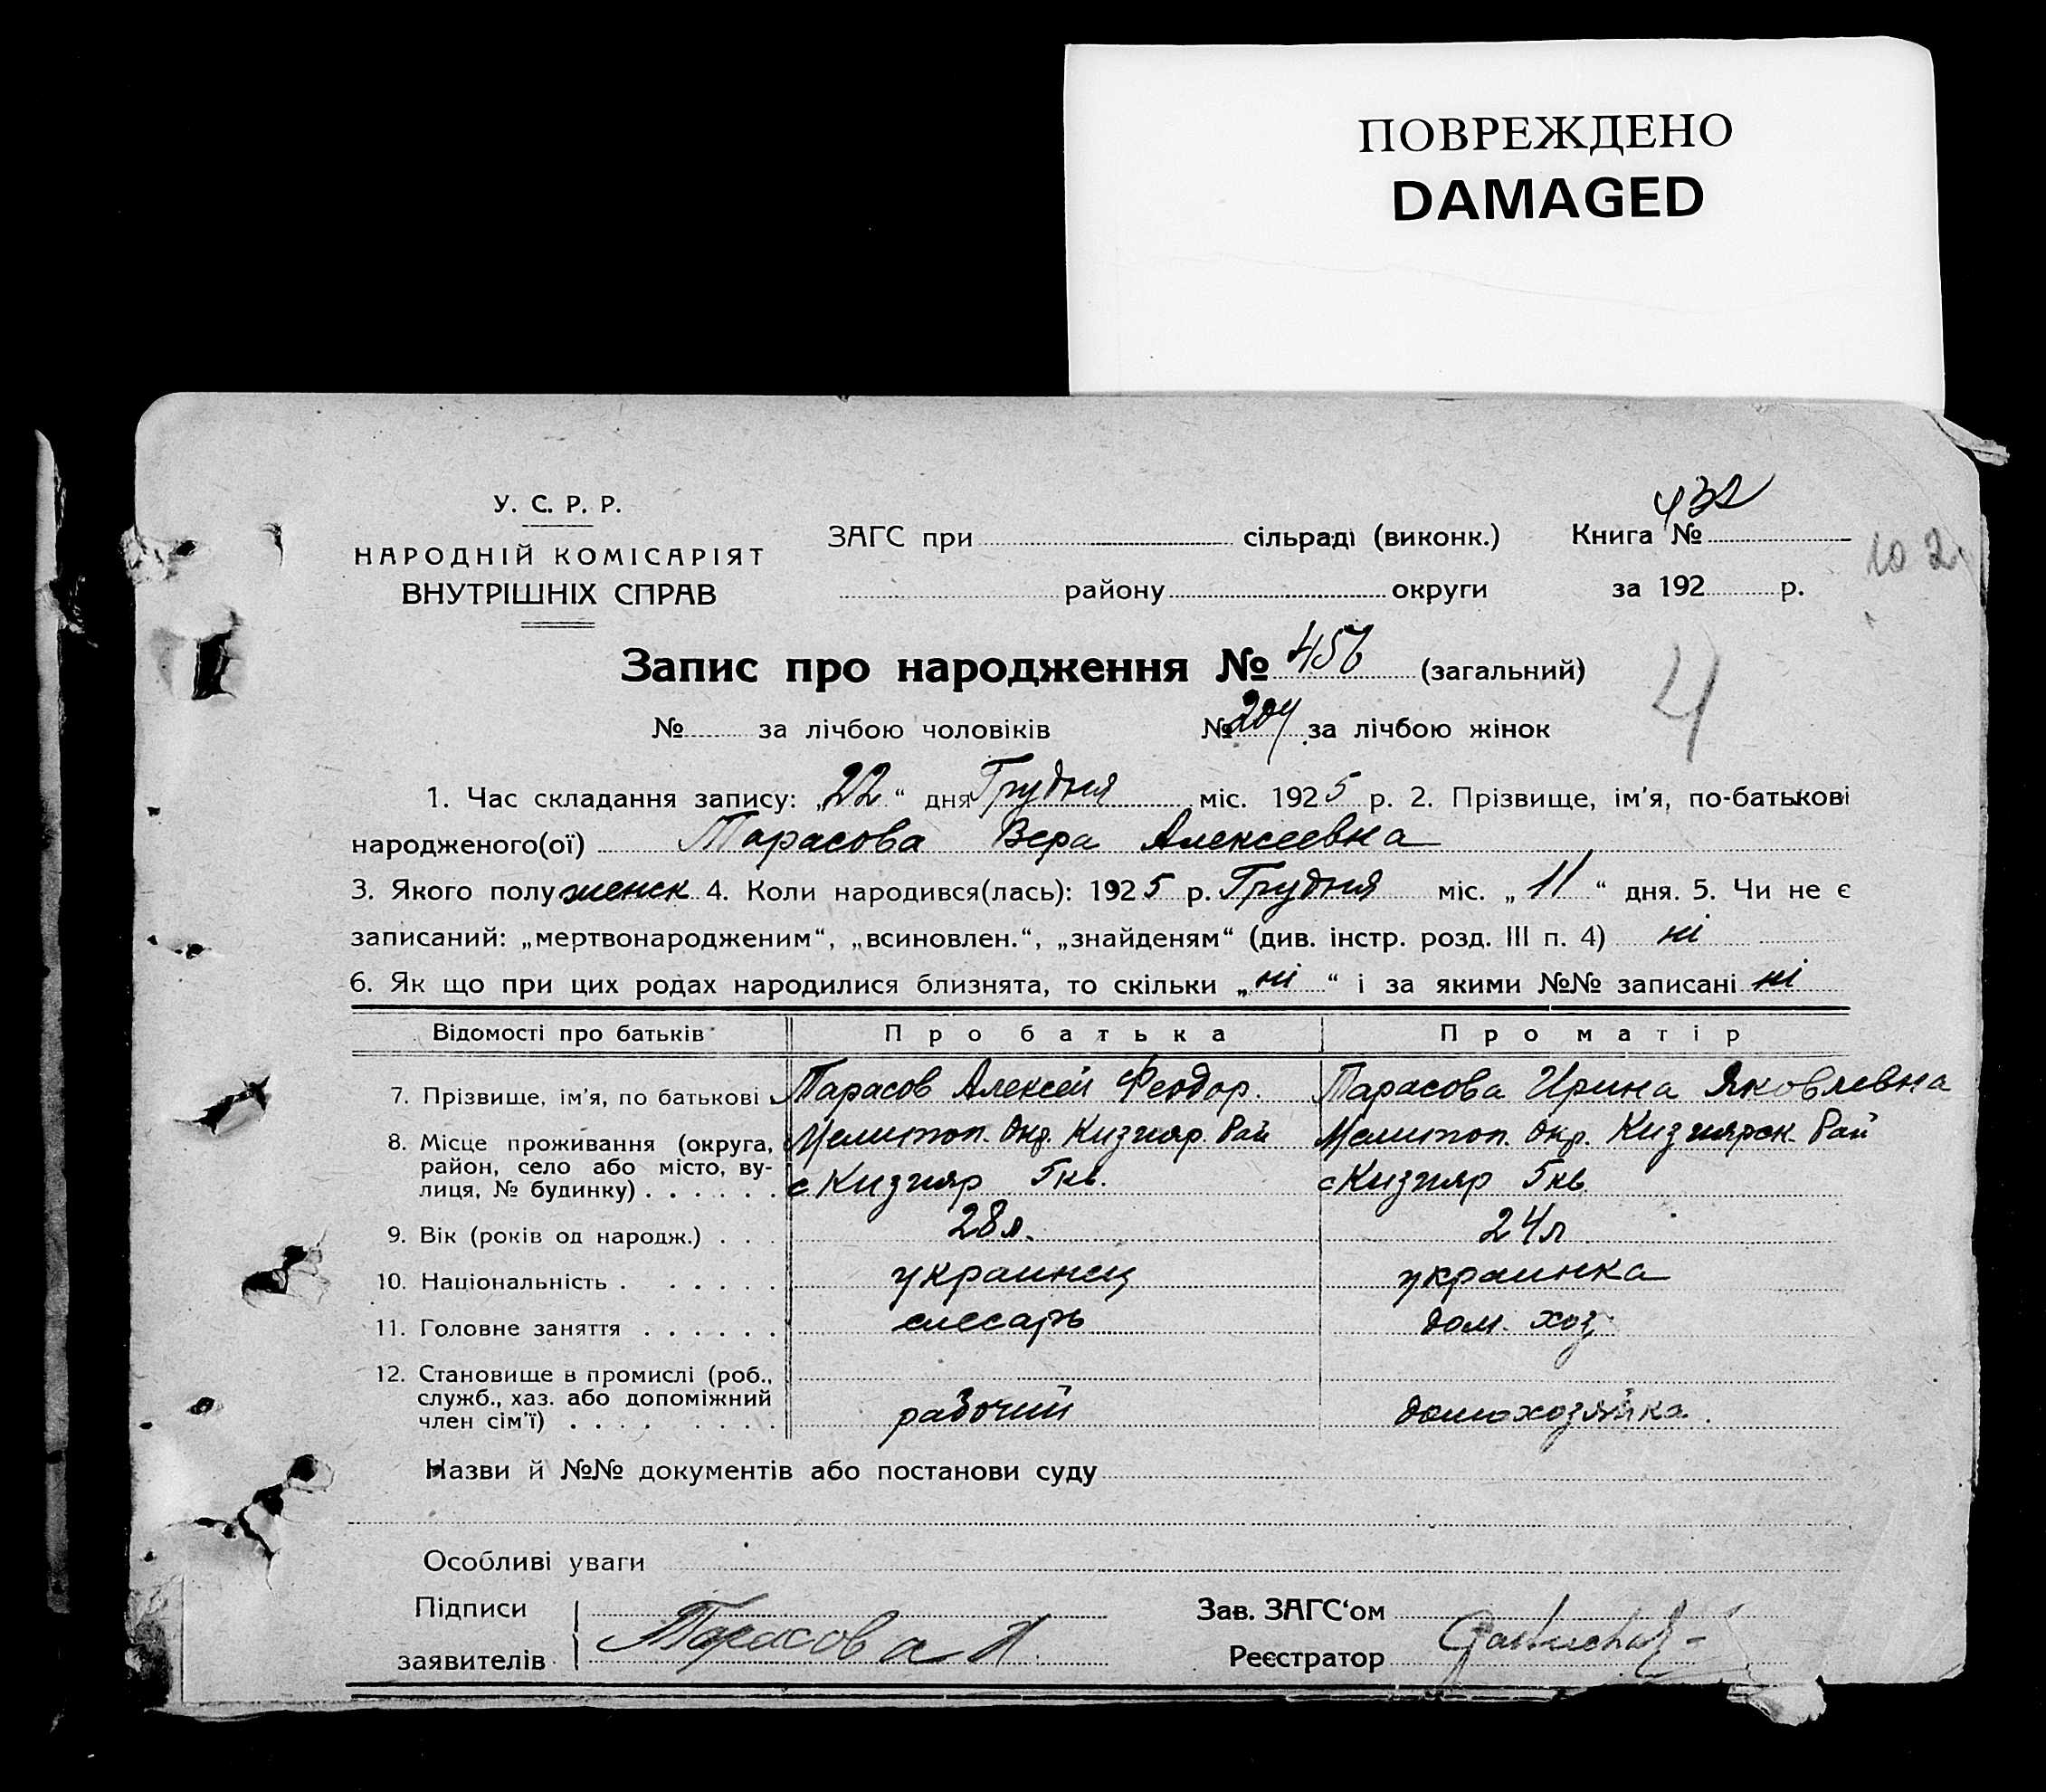 ПОВРЕЖДЕНО
DAMAGED
У. С. Р. Р.
НАРОДНІЙ КОМІСАРІЯТ
ВНУТРІШНІХ СПРАВ
ЗАГС при сільраді (виконк.)
району округи
432
Книга №
за 192 р.
102
Запис про народження № 456 (загальний)
4
№ за лічбою чоловіків № 204 за лічбою жінок
1. Час складання запису: „22“ дня Грудня міс. 1925 р. 2. Прізвище, ім'я, по-батькові
народженого(ої) Тарасова Вера Алексеевна
3. Якого полу женск 4. Коли народився(лась): 1925 р. Грудня міс. „11“ дня. 5. Чи не є
записаний: „мертвонародженим“, „всиновлен.“, „знайденям“ (див. інстр. розд. III п. 4) ні
6. Як що при цих родах народилися близнята, то скільки „ні“ і за якими №№ записані ні
Відомості про батьків Про батька Про матір
7. Прізвище, ім'я, по батькові Тарасов Алексей Феодор. Тарасова Ирина Яковлевна
8. Місце проживання (округа, Мелитоп. Окр. Кизияр. Рай Мелитоп. Окр. Кизиярск. Рай
район, село або місто, ву-
лиця, № будинку) . . . . . . с Кизияр 5кв. с Кизияр 5кв
9. Вік (років од народж.) . . . 28л. 24л
10. Національність . . . . . . украинец украинка
11. Головне заняття . . . . . . слесарь дом. хоз.
12. Становище в промислі (роб.,
служб., хаз. або допоміжний
член сім'ї) . . . . . . . . рабочий домохозяйка.
Назви й №№ документів або постанови суду
Особливі уваги
Підписи
заявителів Тарасова И.
Зав. ЗАГС'ом
Реєстратор